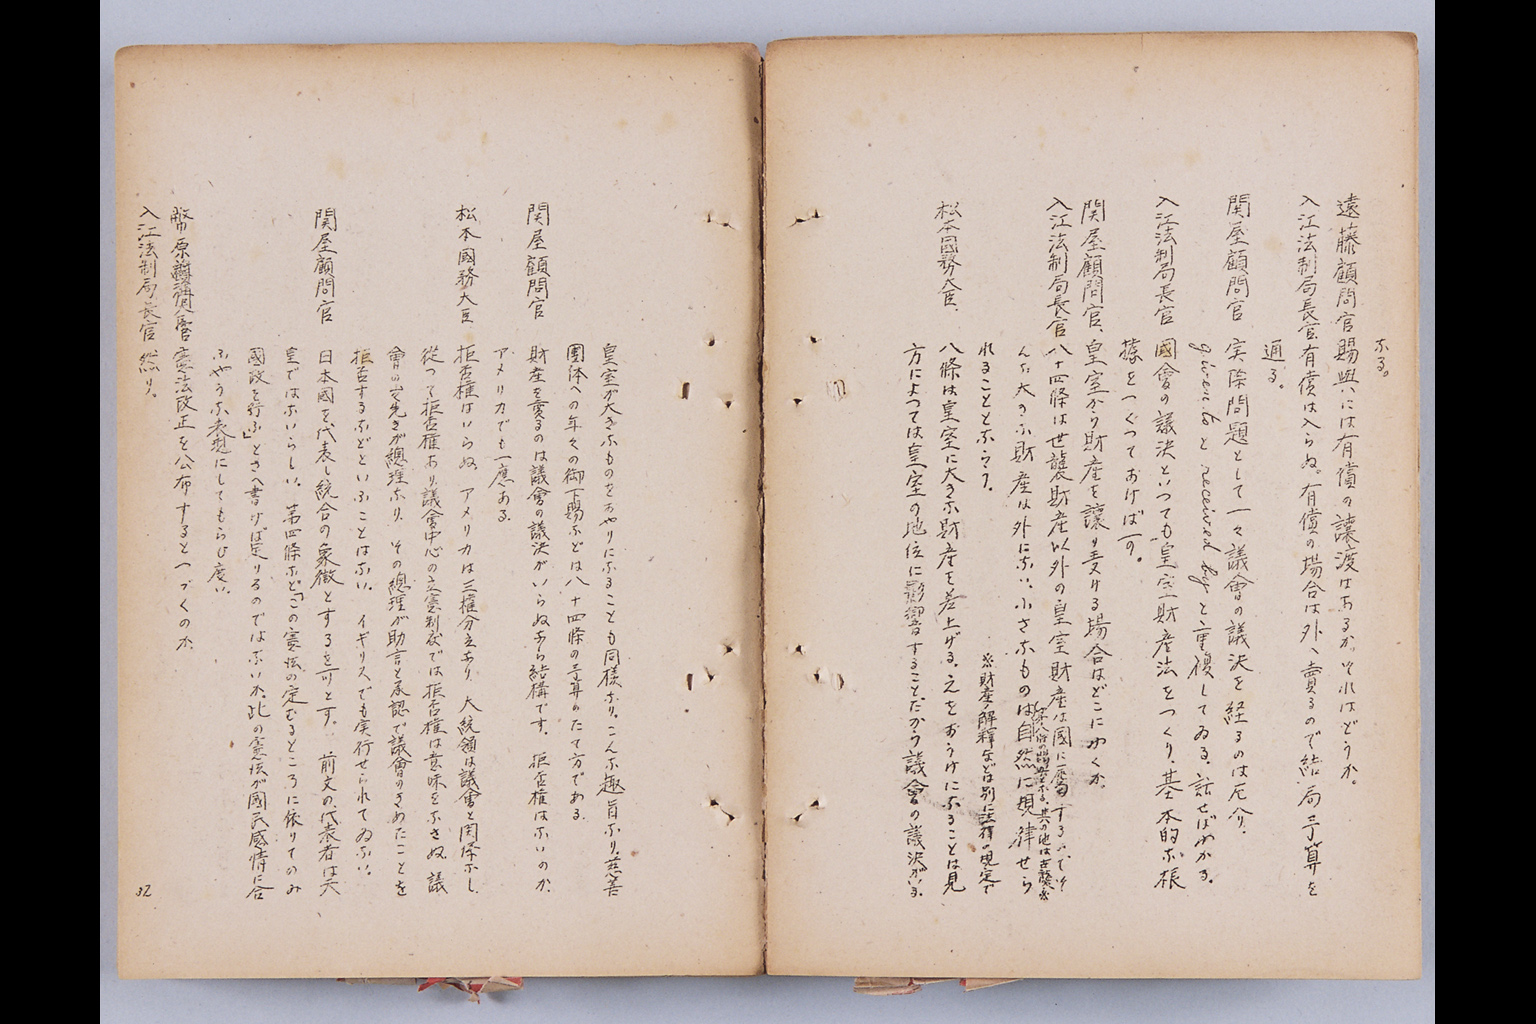 ある。
遠藤顧問官 賜與には有償の讓渡はあるか。それはどうか。
入江法制局長官 有償は入らぬ。有償の場合は外へ賣るので結局予算を
通る。
関屋顧問官 実際問題として一々議會の議決を経るのは厄介。
given to と received by と重複してゐる。話せばわかる。
入江法制局長官 國會の議決といつても皇室財産法をつくり、基本的な根
據をつくつておけば可。
関屋顧問官、皇室から財産を讓り受ける場合はどこにゆくか。
入江法制局長官 八十四條は世襲財産以外の皇室財産は國に属するので
んな大きな財産は外にない、小さなものは自然に規律せら
れることとならう。
※財産の解釋などは別に法律の規定で
松本國務大臣、八條は皇室に大きな財産を差上げる、又をおうけになることは見
方によつては皇室の地位に影響することだから議會の議決がいる。
皇室が大きなものをおやりになることも同様なり。こんな趣旨なり。慈善
團体への年々の御下賜などは八十四條の予算のたて方である
関屋顧問官 財産を受るのは議會の議決がいらぬなら結構です。拒否権はないのか、
アメリカでも一應ある
松本國務大臣 拒否権はいらぬ、アメリカは三権分立あり、大統領は議會と関係なし、
従つて拒否権あり、議會中心の立憲制度では拒否権は意味をなさぬ、議
會の出先きが總理なり、その總理が助言と承認で議會のきめたことを
拒否するなどといふことはない。イギリスでも実行せられてゐない。
関屋顧問官 日本國を代表し統合の象徴とするを可とす。前文の、代表者は天
皇ではないらしい。第四條など「この憲法の定むるところに依りてのみ
國政を行ふ」とさへ書けば足りるのではないか、此の憲法が國民感情に合
ふやうな表現にしてもらひ度い。
幣原 憲法改正を公布するとつづくのか
入江法制局長官 然り。
32